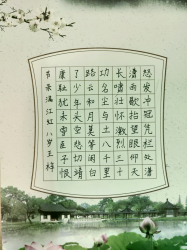 怒发冲冠凭栏处潇
潇雨歇抬望眼仰天
长啸壮怀激烈三十
功名尘与土八千里
路云和月莫等闲白
了少年头空悲切靖
康耻犹未雪臣子恨
节录满江红 八岁王